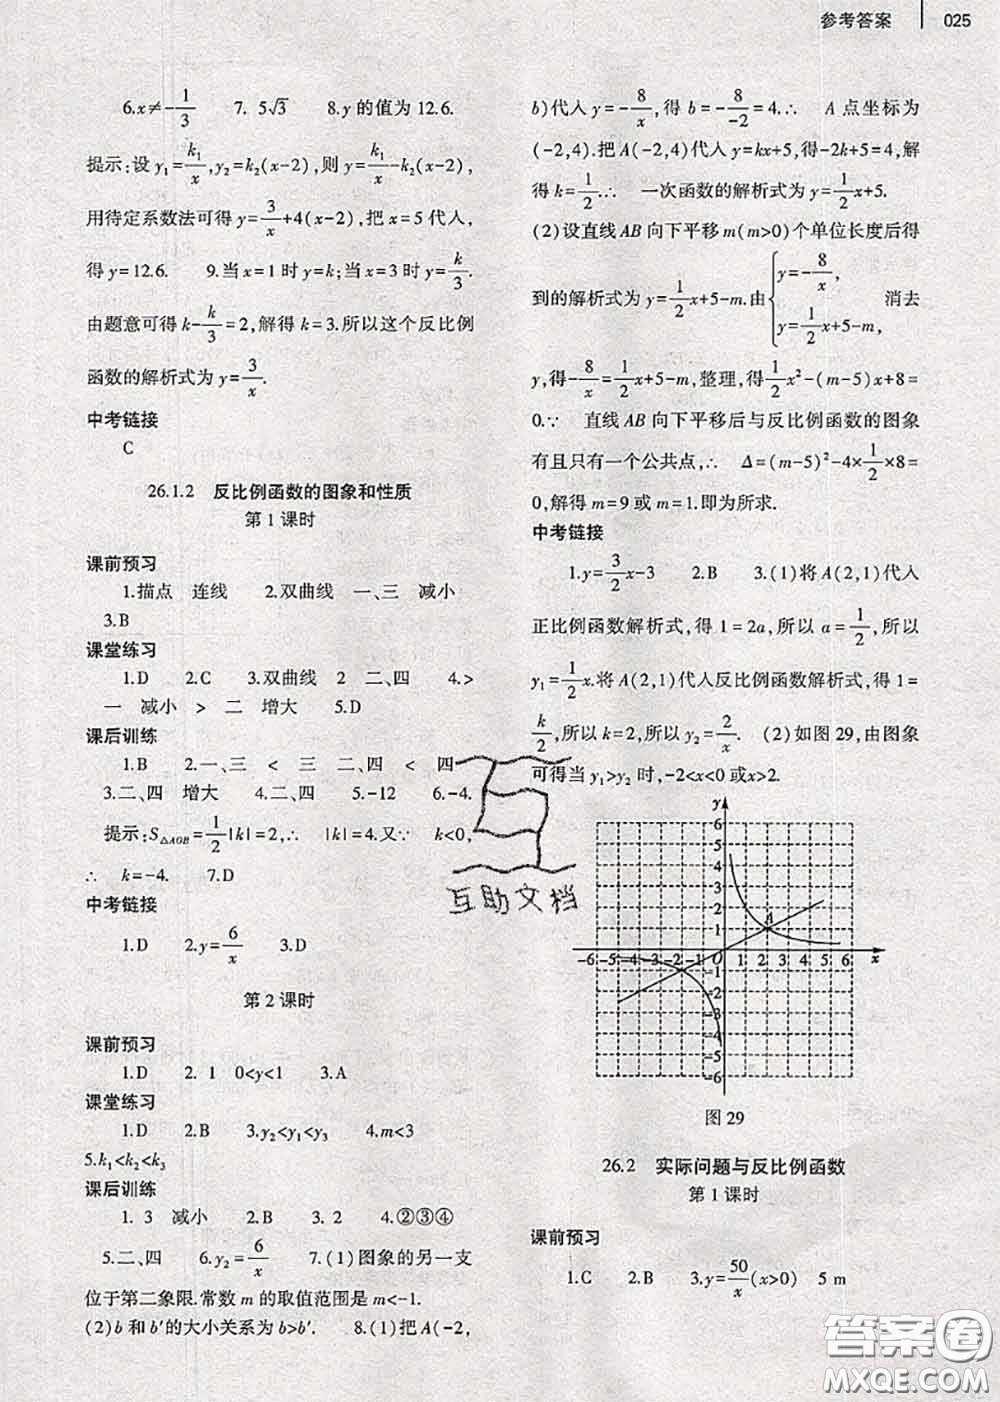 参考答案 025
6.x≠-1/3 7. 5√3 8.y的值为12.6.
提示:设y₁=k₁/x,y₂=k₂(x-2),则y=k₁/x-k₂(x-2),
用待定系数法可得y=3/x+4(x-2),把x=5代人,
得y=12.6. 9.当x=1时y=k;当x=3时y=k/3.
由题意可得k-k/3=2,解得k=3.所以这个反比例
函数的解析式为y=3/x.
中考链接
C
26.1.2 反比例函数的图象和性质
第1课时
课前预习
1.描点 连线 2.双曲线 一、三 减小
3.B
课堂练习
1.D 2.C 3.双曲线 2 二、四 4.>
一 减小 > 二 增大 5.D
课后训练
1.B 2.一、三 < 三 二、四 < 四
3.二、四 增大 4.二、四 5.-12 6.-4.
提示:S△AOB=1/2|k|=2,∴ |k|=4.又∵ k<0,
∴ k=-4. 7.D
中考链接
1.D 2.y=6/x 3.D
第2课时
课前预习
1.D 2. 1 0<y<1 3.A
课堂练习
1.D 2.B 3.y₂<y₁<y₃ 4.m<3
5.k₁<k₂<k₃
课后训练
1. 3 减小 2.B 3. 2 4.②③④
5.二、四 6.y₂=6/x 7.(1)图象的另一支
位于第二象限.常数m的取值范围是m<-1.
(2)b和b′的大小关系为b>b′. 8.(1)把A(-2,
b)代入y=-8/x,得b=-8/-2=4.∴ A点坐标为
(-2,4).把A(-2,4)代人y=kx+5,得-2k+5=4,解
得k=1/2.∴ 一次函数的解析式为y=1/2x+5.
(2)设直线AB向下平移m(m>0)个单位长度后得
到的解析式为y=1/2x+5-m.由{y=-8/x, y=1/2x+5-m, 消去
y,得-8/x=1/2x+5-m,整理,得1/2x²-(m-5)x+8=
0.∵ 直线AB向下平移后与反比例函数的图象
有且只有一个公共点,∴ Δ=(m-5)²-4×1/2×8=
0,解得m=9或m=1.即为所求.
中考链接
1.y=3/2x-3 2.B 3.(1)将A(2,1)代入
正比例函数解析式,得1=2a,所以a=1/2,所以
y₁=1/2x.将A(2,1)代人反比例函数解析式,得1=
k/2,所以k=2,所以y₂=2/x. (2)如图29,由图象
可得当y₁>y₂时,-2<x<0或x>2.
y
6
5
4
3
2
1
A
-6 -5 -4 -3 -2 -1 O 1 2 3 4 5 6 x
-1
-2
-3
-4
-5
-6
图29
26.2 实际问题与反比例函数
第1课时
课前预习
1.C 2.B 3.y=50/x(x>0) 5 m
互助文档
答案圈
MXQE.COM